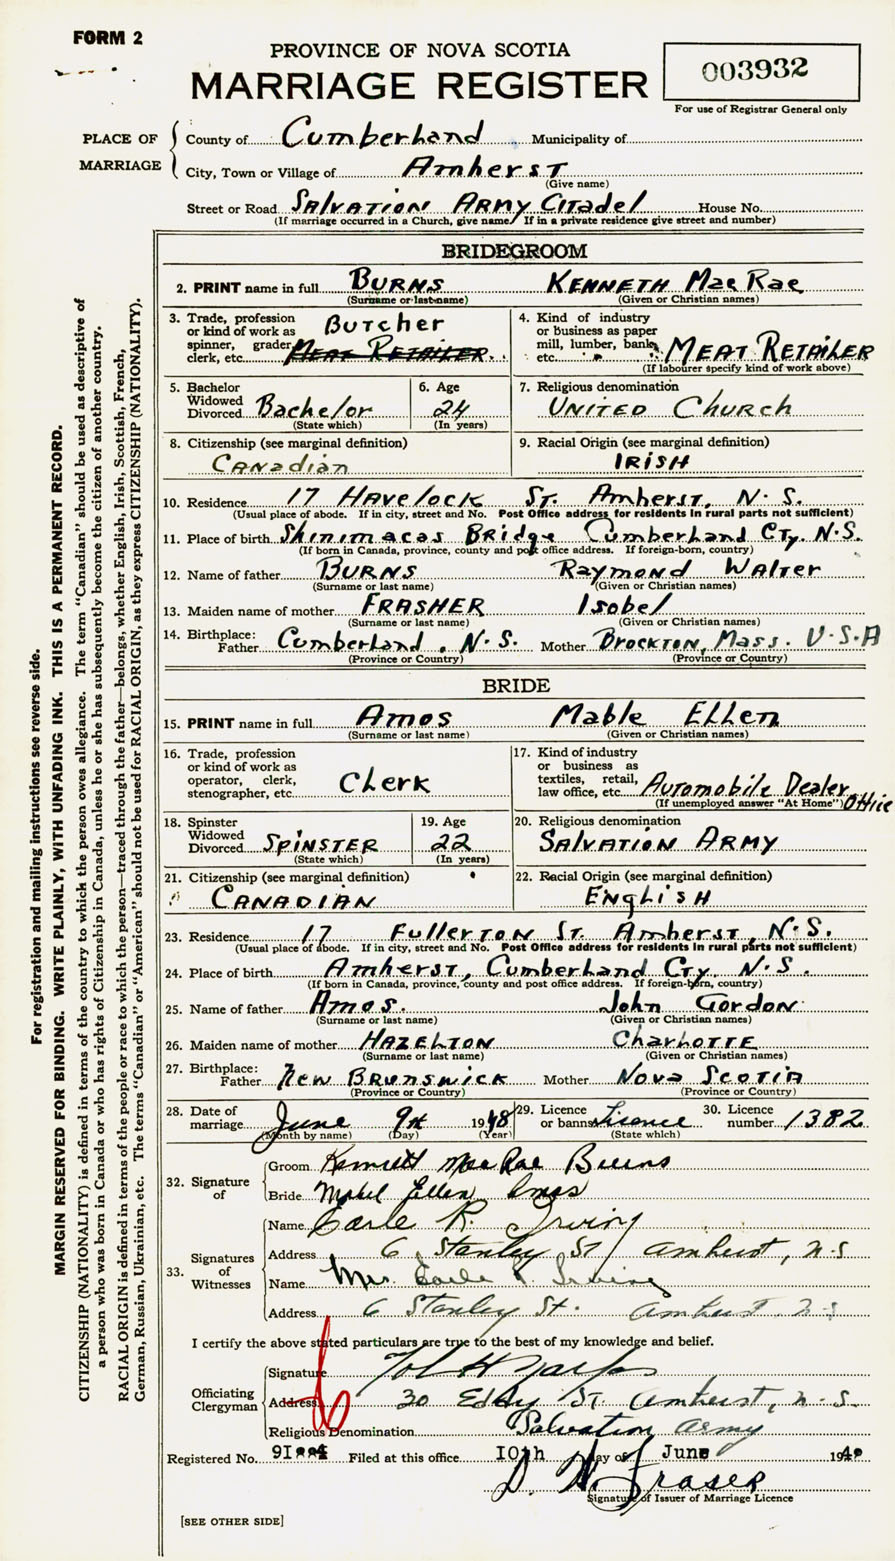 FORM 2
PROVINCE OF NOVA SCOTIA
MARRIAGE REGISTER
003932
For use of Registrar General only
PLACE OF MARRIAGE
County of Cumberland Municipality of
City, Town or Village of Amherst
(Give name)
Street or Road Salvation Army Citadel House No.
(If marriage occurred in a Church, give name. If in a private residence give street and number)
BRIDEGROOM
2. PRINT name in full BURNS KENNETH MacRae
(Surname or last name) (Given or Christian names)
3. Trade, profession or kind of work as spinner, grader, clerk, etc. Butcher MEAT RETAILER
4. Kind of industry or business as paper mill, lumber, bank, etc. MEAT RETAILER
(If labourer specify kind of work above)
5. Bachelor Widowed Divorced Bachelor
(State which)
6. Age 24
(In years)
7. Religious denomination UNITED Church
8. Citizenship (see marginal definition) CANadian
9. Racial Origin (see marginal definition) IRISH
10. Residence 17 Havelock St. Amherst, N.S.
(Usual place of abode. If in city, street and No. Post Office address for residents in rural parts not sufficient)
11. Place of birth Shinimacas Bridge Cumberland CTy. N.S.
(If born in Canada, province, county and post office address. If foreign-born, country)
12. Name of father BURNS Raymond Walter
(Surname or last name) (Given or Christian names)
13. Maiden name of mother FRASHER Isobel
(Surname or last name) (Given or Christian names)
14. Birthplace: Father Cumberland, N.S. Mother Brockton, Mass. U.S.A
(Province or Country) (Province or Country)
BRIDE
15. PRINT name in full Amos Mable Ellen
(Surname or last name) (Given or Christian names)
16. Trade, profession or kind of work as operator, clerk, stenographer, etc. Clerk
17. Kind of industry or business as textiles, retail, law office, etc. Automobile Dealer Office
(If unemployed answer "At Home")
18. Spinster Widowed Divorced SPINSTER
(State which)
19. Age 22
(In years)
20. Religious denomination SALVATION ARMY
21. Citizenship (see marginal definition) CANADIAN
22. Racial Origin (see marginal definition) ENgLiSH
23. Residence 17 Fullerton St. Amherst, N.S.
(Usual place of abode. If in city, street and No. Post Office address for residents in rural parts not sufficient)
24. Place of birth Amherst, Cumberland Cty. N.S.
(If born in Canada, province, county and post office address. If foreign-born, country)
25. Name of father Amos. John Gordon
(Surname or last name) (Given or Christian names)
26. Maiden name of mother HAZELTON CharLOTTE
(Surname or last name) (Given or Christian names)
27. Birthplace: Father New Brunswick Mother Nova Scotia
(Province or Country) (Province or Country)
28. Date of marriage June 9th 1948
(Month by name) (Day) (Year)
29. Licence or banns Lisence
(State which)
30. Licence number 1382
32. Signature of
Groom Kenneth MacRae Burns
Bride Mabel Ellen Amos
33. Signatures of Witnesses
Name Earle R. Irving
Address 6 Stanley St Amherst, N-S
Name Mrs. Earle R. Irving
Address 6 Stanley St. Amherst N-S
I certify the above stated particulars are true to the best of my knowledge and belief.
Officiating Clergyman
Signature
Address 30 Eddy St. Amherst, N-S.
Religious Denomination Salvation Army
Registered No. Filed at this office 10th day of June 194
D. W. Fraser
Signature of Issuer of Marriage Licence
[SEE OTHER SIDE]
For registration and mailing instructions see reverse side.
MARGIN RESERVED FOR BINDING. WRITE PLAINLY, WITH UNFADING INK. THIS IS A PERMANENT RECORD.
CITIZENSHIP (NATIONALITY) is defined in terms of the country to which the person owes allegiance. The term "Canadian" should be used as descriptive of
a person who was born in Canada or who has rights of Citizenship in Canada, unless he or she has subsequently become the citizen of another country.
RACIAL ORIGIN is defined in terms of the people or race to which the person—traced through the father—belongs, whether English, Irish, Scottish, French,
German, Russian, Ukrainian, etc. The terms "Canadian" or "American" should not be used for RACIAL ORIGIN, as they express CITIZENSHIP (NATIONALITY).